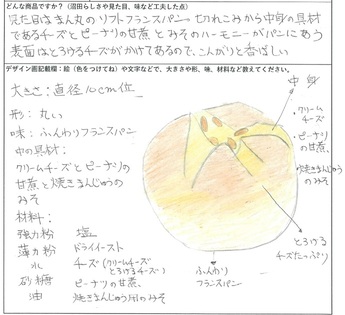 どんな商品ですか？（沼田らしさや見た目、味など工夫した点）
見た目はまん丸のソフトフランスパン 切れこみから中身の具材
であるチーズとピーナリの甘煮とみそのハーモニーがパンにあう
表面はとろけるチーズがかけてあるので、こんがりと香ばしい
デザイン画記載欄：絵（色をつけてね）や文字などで、大きさや形、味、材料など教えてください。
大きさ：直径10cm位
形：丸い
味：ふんわりフランスパン
中の具材：
クリームチーズとピーナリの
甘煮と焼きまんじゅうの
みそ
材料：
強力粉 塩
薄力粉 ドライイースト
水 チーズ（クリームチーズ とろけるチーズ）
砂糖 ピーナリの甘煮
油 焼きまんじゅう用のみそ
中身
・クリームチーズ
・ピーナリの甘煮、
・焼きまんじゅうのみそ
とろける
チーズたっぷり
ふんわり
フランスパン